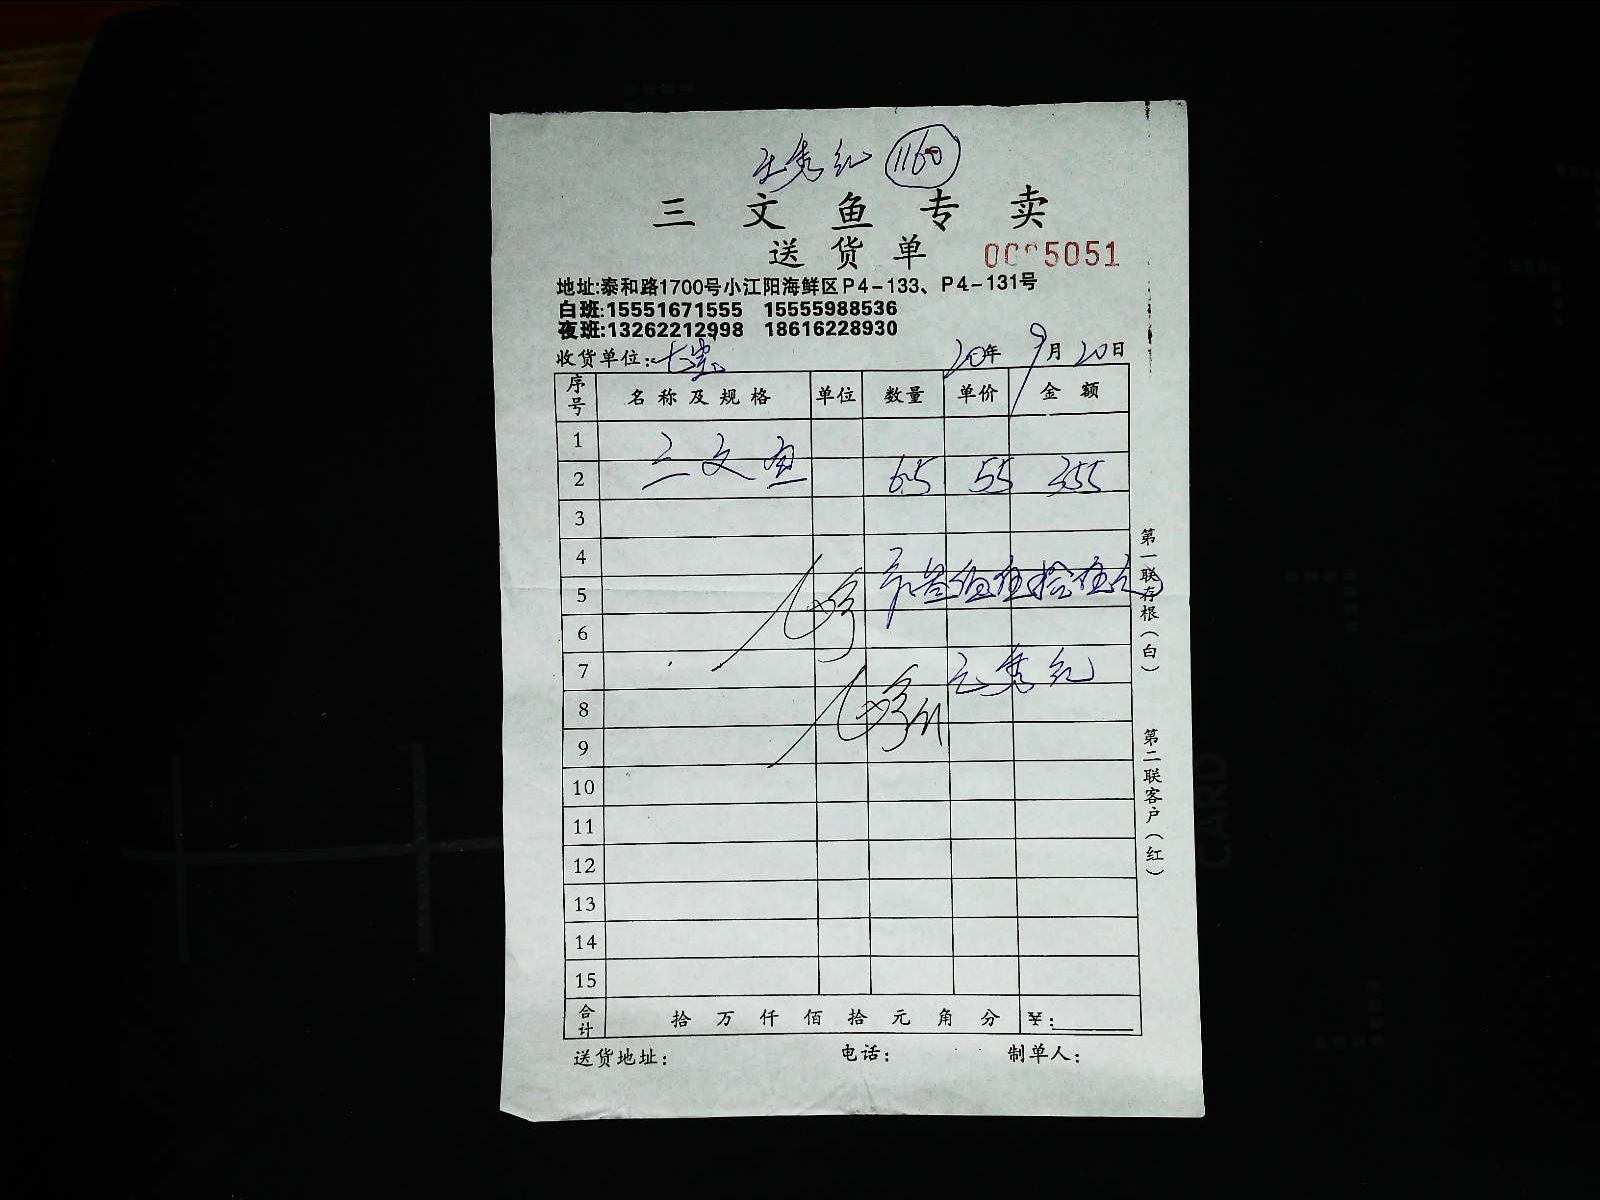 秀红 1160
三文鱼专卖
送货单 5051
地址:泰和路1700号小江阳海鲜区P4-133、P4-131号
白班:15551671555 15555988536
夜班:13262212998 18616228930
收货单位: 20年9月20日
序号 名称及规格 单位 数量 单价 金额
1
三文鱼
2 6.5 55 355
3
4
5 叁佰伍拾伍元
6
7 秀红
8
9
10
11
12
13
14
15
合计 拾万仟佰拾元角分 ¥:
送货地址: 电话: 制单人:
第一联存根(白)
第二联客户(红)
CARD